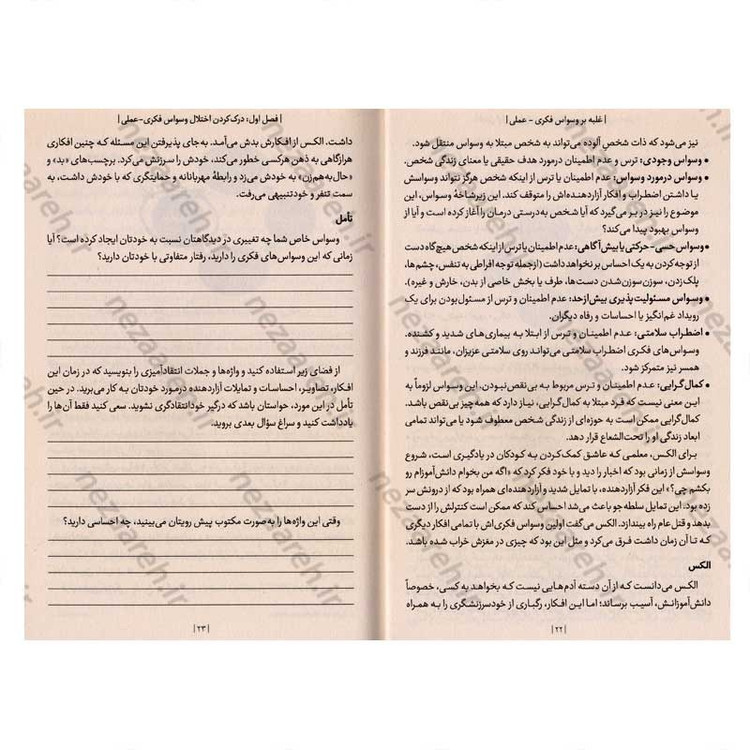 | غلبه بر وسواس فکری - عملی |
نیز می‌شود که ذات شخصِ آلوده می‌تواند به شخص مبتلا به وسواس منتقل شود.
• وسواس وجودی: ترس و عدم اطمینان درمورد هدف حقیقی یا معنای زندگی شخص.
• وسواس درمورد وسواس: عدم اطمینان یا ترس از اینکه شخص هرگز نتواند وسواسش
یا داشتن اضطراب و افکار آزاردهنده‌اش را متوقف کند. این زیرشاخهٔ وسواس، این
موضوع را نیز در بر می‌گیرد که آیا شخص به‌درستی درمان را آغاز کرده است و آیا از
وسواس بهبود پیدا می‌کند؟
• وسواس حسی-حرکتی یا بیش‌آگاهی: عدم اطمینان یا ترس از اینکه شخص هیچ‌گاه دست
از توجه کردن به یک احساس بر نخواهد داشت (ازجمله توجه افراطی به تنفس، چشم‌ها،
پلک‌زدن، سوزن‌سوزن‌شدن دست‌ها، طرف یا بخش خاصی از بدن، خارش و غیره).
• وسواس مسئولیت‌پذیری بیش‌ازحد: عدم اطمینان و ترس از مسئول‌بودن برای یک
رویداد غم‌انگیز یا احساسات و رفاه دیگران.
• اضطراب سلامتی: عدم اطمینان و ترس از ابتلا به بیماری‌های شدید و کشنده.
وسواس‌های فکری اضطراب سلامتی می‌تواند روی سلامتی عزیزان، مانند فرزند و
همسر نیز متمرکز شود.
• کمال‌گرایی: عدم اطمینان و ترس مربوط به بی‌نقص‌نبودن. این وسواس لزوماً به
این معنی نیست که فرد مبتلا به کمال‌گرایی، نیاز دارد که همه‌چیز بی‌نقص باشد.
کمال‌گرایی ممکن است به حوزه‌ای از زندگی شخص معطوف شود یا می‌تواند تمامی
ابعاد زندگی او را تحت‌الشعاع قرار دهد.
برای الکس، معلمی که عاشق کمک‌کردن به کودکان در یادگیری است، شروع
وسواسش از زمانی بود که اخبار را دید و با خود فکر کرد که «اگه من بخوام دانش‌آموزام رو
بکشم چی؟» این فکر آزاردهنده، با تمایل شدید و آزاردهنده‌ای همراه بود که از درونش سر
زده بود. این تمایل سلطه‌جو باعث می‌شد احساس کند که ممکن است کنترلش را از دست
بدهد و قتل عام راه بیندازد. الکس می‌گفت اولین وسواس فکری‌اش با تمامی افکار دیگری
که تا آن زمان داشت فرق می‌کرد و مثل این بود که چیزی در مغزش خراب شده باشد.
الکس
الکس می‌دانست که از آن دسته آدم‌هایی نیست که بخواهد به کسی، خصوصاً
دانش‌آموزانش، آسیب برساند؛ اما این افکار، رگباری از خودسرزنشگری را به همراه
| ۲۲ |
| فصل اول: درک‌کردن اختلال وسواس فکری-عملی |
داشت. الکس از افکارش بدش می‌آمد. به‌جای پذیرفتن این مسئله که چنین افکاری
هرازگاهی به ذهن هرکسی خطور می‌کند، خودش را سرزنش می‌کرد. برچسب‌های «بد» و
«حال‌به‌هم‌زن» به خودش می‌زد و رابطهٔ مهربانانه و حمایتگری که با خودش داشت، به
سمت تنفر و خودتنبیهی می‌رفت.
تأمل
وسواس خاص شما چه تغییری در دیدگاهتان نسبت به خودتان ایجاد کرده است؟ آیا
زمانی که این وسواس‌های فکری را دارید، رفتار متفاوتی با خودتان دارید؟
از فضای زیر استفاده کنید و واژه‌ها و جملات انتقادآمیزی را بنویسید که در زمان این
افکار، تصاویر، احساسات و تمایلات آزاردهنده درمورد خودتان به کار می‌برید. در حین
تأمل در این مورد، حواستان باشد که درگیر خودانتقادگری نشوید. سعی کنید فقط آن‌ها را
یادداشت کنید و سراغ سؤال بعدی بروید.
وقتی این واژه‌ها را به‌صورت مکتوب پیش رویتان می‌بینید، چه احساسی دارید؟
| ۲۳ |
nezaareh.ir